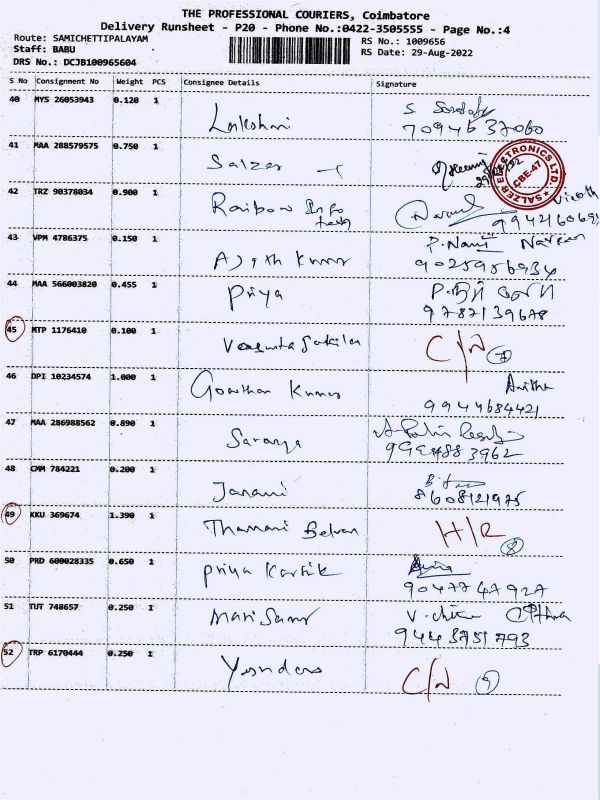 THE PROFESSIONAL COURIERS, Coimbatore
Delivery Runsheet - P20 - Phone No.:0422-3505555 - Page No.:4
Route: SAMICHETTIPALAYAM
Staff: BABU
DRS No.: DCJB100965604
RS No.: 1009656
RS Date: 29-Aug-2022
S No Consignment No Weight PCS Consignee Details Signature
40 MYS 26053943 0.120 1
Lakshmi
7094637060
41 MAA 288579575 0.750 1
Salzer
SALZER ELECTRONICS LTD
CBE-47
42 TRZ 90378034 0.900 1
Rainbow Info
tech
43 VPM 4786375 0.150 1
Ajith Kumar
P. Naveen
9025956934
44 MAA 566003820 0.455 1
Priya
9787139678
45 MTP 1176410 0.100 1
C/N 7
46 DPI 10234574 1.000 1
Gowtham Kumar
Anitha
9944684421
47 MAA 286988562 0.890 1
Saranya
48 CMM 784221 0.200 1
Janani
8608121975
49 KKU 369674 1.390 1
H/R
8
50 PRD 600028335 0.650 1
Priya Kartik
9047747927
51 TUT 748657 0.250 1
9443751793
52 TRP 6170444 0.250 1
C/N 9